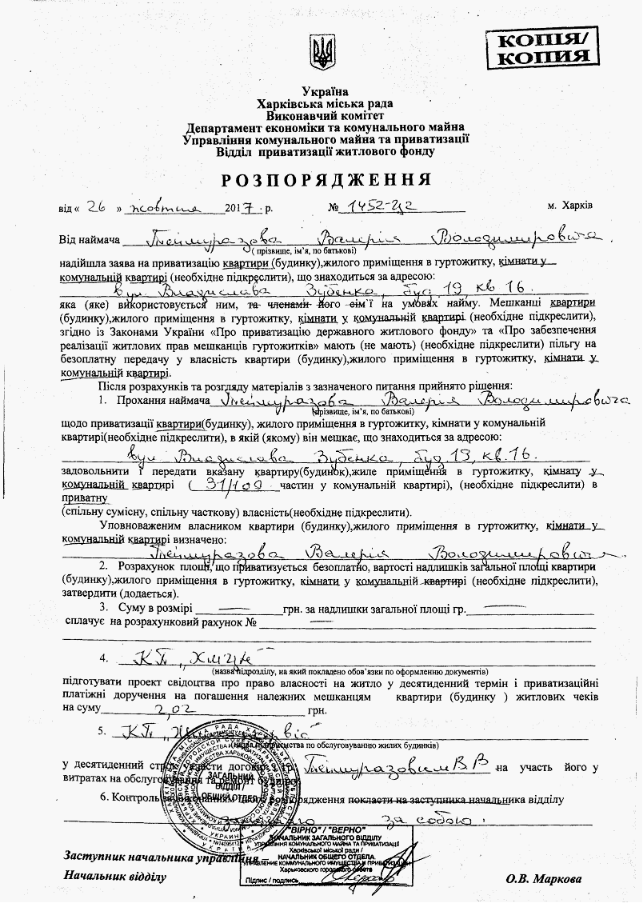 КОПІЯ/
КОПИЯ
Україна
Харківська міська рада
Виконавчий комітет
Департамент економіки та комунального майна
Управління комунального майна та приватизації
Відділ приватизації житлового фонду
РОЗПОРЯДЖЕННЯ
від « 26 » жовтня 2017 р. № 1452-Ц2 м. Харків
Від наймача Теймуразова Валерія Володимировича
( прізвище, ім'я, по батькові)
надійшла заява на приватизацію квартири (будинку),жилого приміщення в гуртожитку, кімнати у
комунальній квартирі (необхідне підкреслити), що знаходиться за адресою:
вул Владислава Зубенка, буд 19 кв 16.
яка (яке) використовується ним, та членами його сім'ї на умовах найму. Мешканці квартири
(будинку),жилого приміщення в гуртожитку, кімнати у комунальній квартирі (необхідне підкреслити),
згідно із Законами України «Про приватизацію державного житлового фонду» та «Про забезпечення
реалізації житлових прав мешканців гуртожитків» мають (не мають) (необхідне підкреслити) пільгу на
безоплатну передачу у власність квартири (будинку),жилого приміщення в гуртожитку, кімнати у
комунальній квартирі.
Після розрахунків та розгляду матеріалів з зазначеного питання прийнято рішення:
1. Прохання наймача Теймуразова Валерія Володимировича
(прізвище, ім'я, по батькові)
щодо приватизації квартири(будинку), жилого приміщення в гуртожитку, кімнати у комунальній
квартирі(необхідне підкреслити), в якій (якому) він мешкає, що знаходиться за адресою:
вул Владислава Зубенка, буд 19, кв. 16.
задовольнити й передати вказану квартиру(будинок),жиле приміщення в гуртожитку, кімнату у
комунальній квартирі ( 31/100 частин у комунальній квартирі), (необхідне підкреслити) в
приватну
(спільну сумісну, спільну часткову) власність(необхідне підкреслити).
Уповноваженим власником квартири (будинку),жилого приміщення в гуртожитку, кімнати у
комунальній квартирі визначено:
Теймуразова Валерія Володимировича.
2. Розрахунок площі, що приватизується безоплатно, вартості надлишків загальної площі квартири
(будинку),жилого приміщення в гуртожитку, кімнати у комунальній квартирі (необхідне підкреслити),
затвердити (додається).
3. Суму в розмірі грн. за надлишки загальної площі гр.
сплачує на розрахунковий рахунок №
4. КП „ХМЦН“
(назва підрозділу, на який покладено обов'язки по оформленню документів)
підготувати проект свідоцтва про право власності на житло у десятиденний термін і приватизаційні
платіжні доручення на погашення належних мешканцям квартири (будинку ) житлових чеків
на суму 2,02 грн.
5. КП
(назва підприємства по обслуговуванню жилих будинків)
у десятиденний строк укласти договір з гр. Теймуразовим В.В на участь його у
витратах на обслуговування та ремонт будинку.
6. Контроль за виконанням цього розпорядження покласти на заступника начальника відділу
залишаю за собою.
ЗАГАЛЬНИЙ
ВІДДІЛ /
ОБЩИЙ ОТДЕЛ
"ВІРНО" / "ВЕРНО"
НАЧАЛЬНИК ЗАГАЛЬНОГО ВІДДІЛУ
УПРАВЛІННЯ КОМУНАЛЬНОГО МАЙНА ТА ПРИВАТИЗАЦІЇ
Харківської міської ради /
НАЧАЛЬНИК ОБЩЕГО ОТДЕЛА
УПРАВЛЕНИЕ КОММУНАЛЬНОГО ИМУЩЕСТВА И ПРИВАТИЗАЦИИ
Харьковского городского совета
Підпис / подпись
Заступник начальника управління
Начальник відділу О.В. Маркова